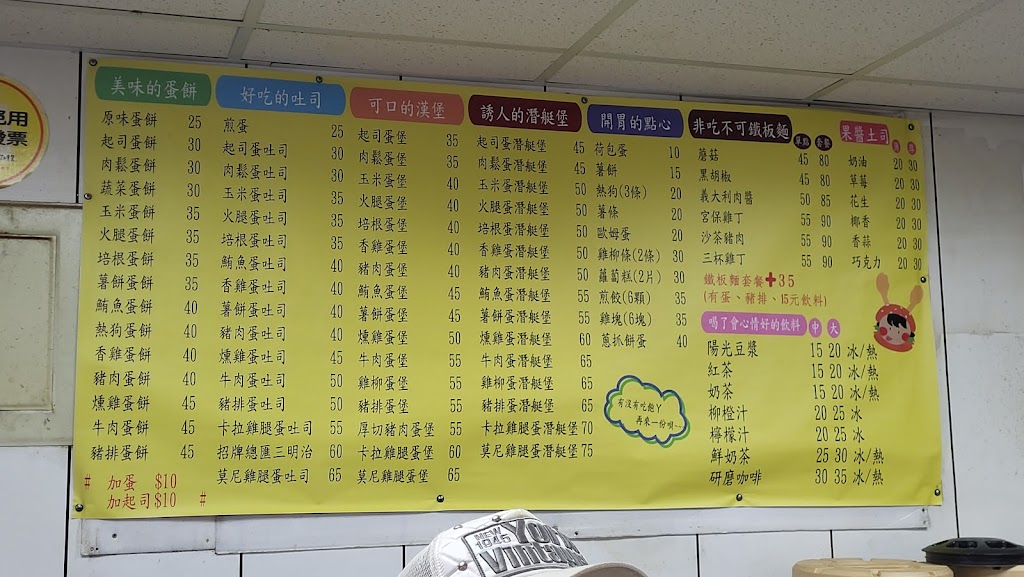 美味的蛋餅
原味蛋餅 25
起司蛋餅 30
肉鬆蛋餅 30
蔬菜蛋餅 30
玉米蛋餅 35
火腿蛋餅 35
培根蛋餅 35
薯餅蛋餅 35
鮪魚蛋餅 40
熱狗蛋餅 40
香雞蛋餅 40
豬肉蛋餅 40
燻雞蛋餅 45
牛肉蛋餅 45
豬排蛋餅 45
# 加蛋 $10
加起司$10 #
好吃的吐司
煎蛋 25
起司蛋吐司 30
肉鬆蛋吐司 30
玉米蛋吐司 35
火腿蛋吐司 35
培根蛋吐司 35
鮪魚蛋吐司 40
香雞蛋吐司 40
薯餅蛋吐司 40
豬肉蛋吐司 40
燻雞蛋吐司 45
牛肉蛋吐司 50
豬排蛋吐司 50
卡拉雞腿蛋吐司 55
招牌總匯三明治 60
莫尼雞腿蛋吐司 65
可口的漢堡
起司蛋堡 35
肉鬆蛋堡 35
玉米蛋堡 40
火腿蛋堡 40
培根蛋堡 40
香雞蛋堡 40
豬肉蛋堡 40
鮪魚蛋堡 45
薯餅蛋堡 45
燻雞蛋堡 50
牛肉蛋堡 55
雞柳蛋堡 55
豬排蛋堡 55
厚切豬肉蛋堡 55
卡拉雞腿蛋堡 60
莫尼雞腿蛋堡 65
誘人的潛艇堡
起司蛋潛艇堡 45
肉鬆蛋潛艇堡 45
玉米蛋潛艇堡 50
火腿蛋潛艇堡 50
培根蛋潛艇堡 50
香雞蛋潛艇堡 50
豬肉蛋潛艇堡 50
鮪魚蛋潛艇堡 55
薯餅蛋潛艇堡 55
燻雞蛋潛艇堡 60
牛肉蛋潛艇堡 65
雞柳蛋潛艇堡 65
豬排蛋潛艇堡 65
卡拉雞腿蛋潛艇堡 70
莫尼雞腿蛋潛艇堡 75
開胃的點心
荷包蛋 10
薯餅 15
熱狗(3條) 20
薯條 20
歐姆蛋 20
雞柳條(2條) 30
蘿蔔糕(2片) 30
煎餃(6顆) 35
雞塊(6塊) 35
蔥抓餅蛋 40
有沒有吃飽ㄚ
再來一份唄~~
非吃不可鐵板麵 單點 套餐
蘑菇 45 80
黑胡椒 45 80
義大利肉醬 50 85
宮保雞丁 55 90
沙茶豬肉 55 90
三杯雞丁 55 90
鐵板麵套餐+35
(有蛋、豬排、15元飲料)
果醬土司
奶油 20 30
草莓 20 30
花生 20 30
椰香 20 30
香蒜 20 30
巧克力 20 30
喝了會心情好的飲料 中 大
陽光豆漿 15 20 冰/熱
紅茶 15 20 冰/熱
奶茶 15 20 冰/熱
柳橙汁 20 25 冰
檸檬汁 20 25 冰
鮮奶茶 25 30 冰/熱
研磨咖啡 30 35 冰/熱
NEW
1945